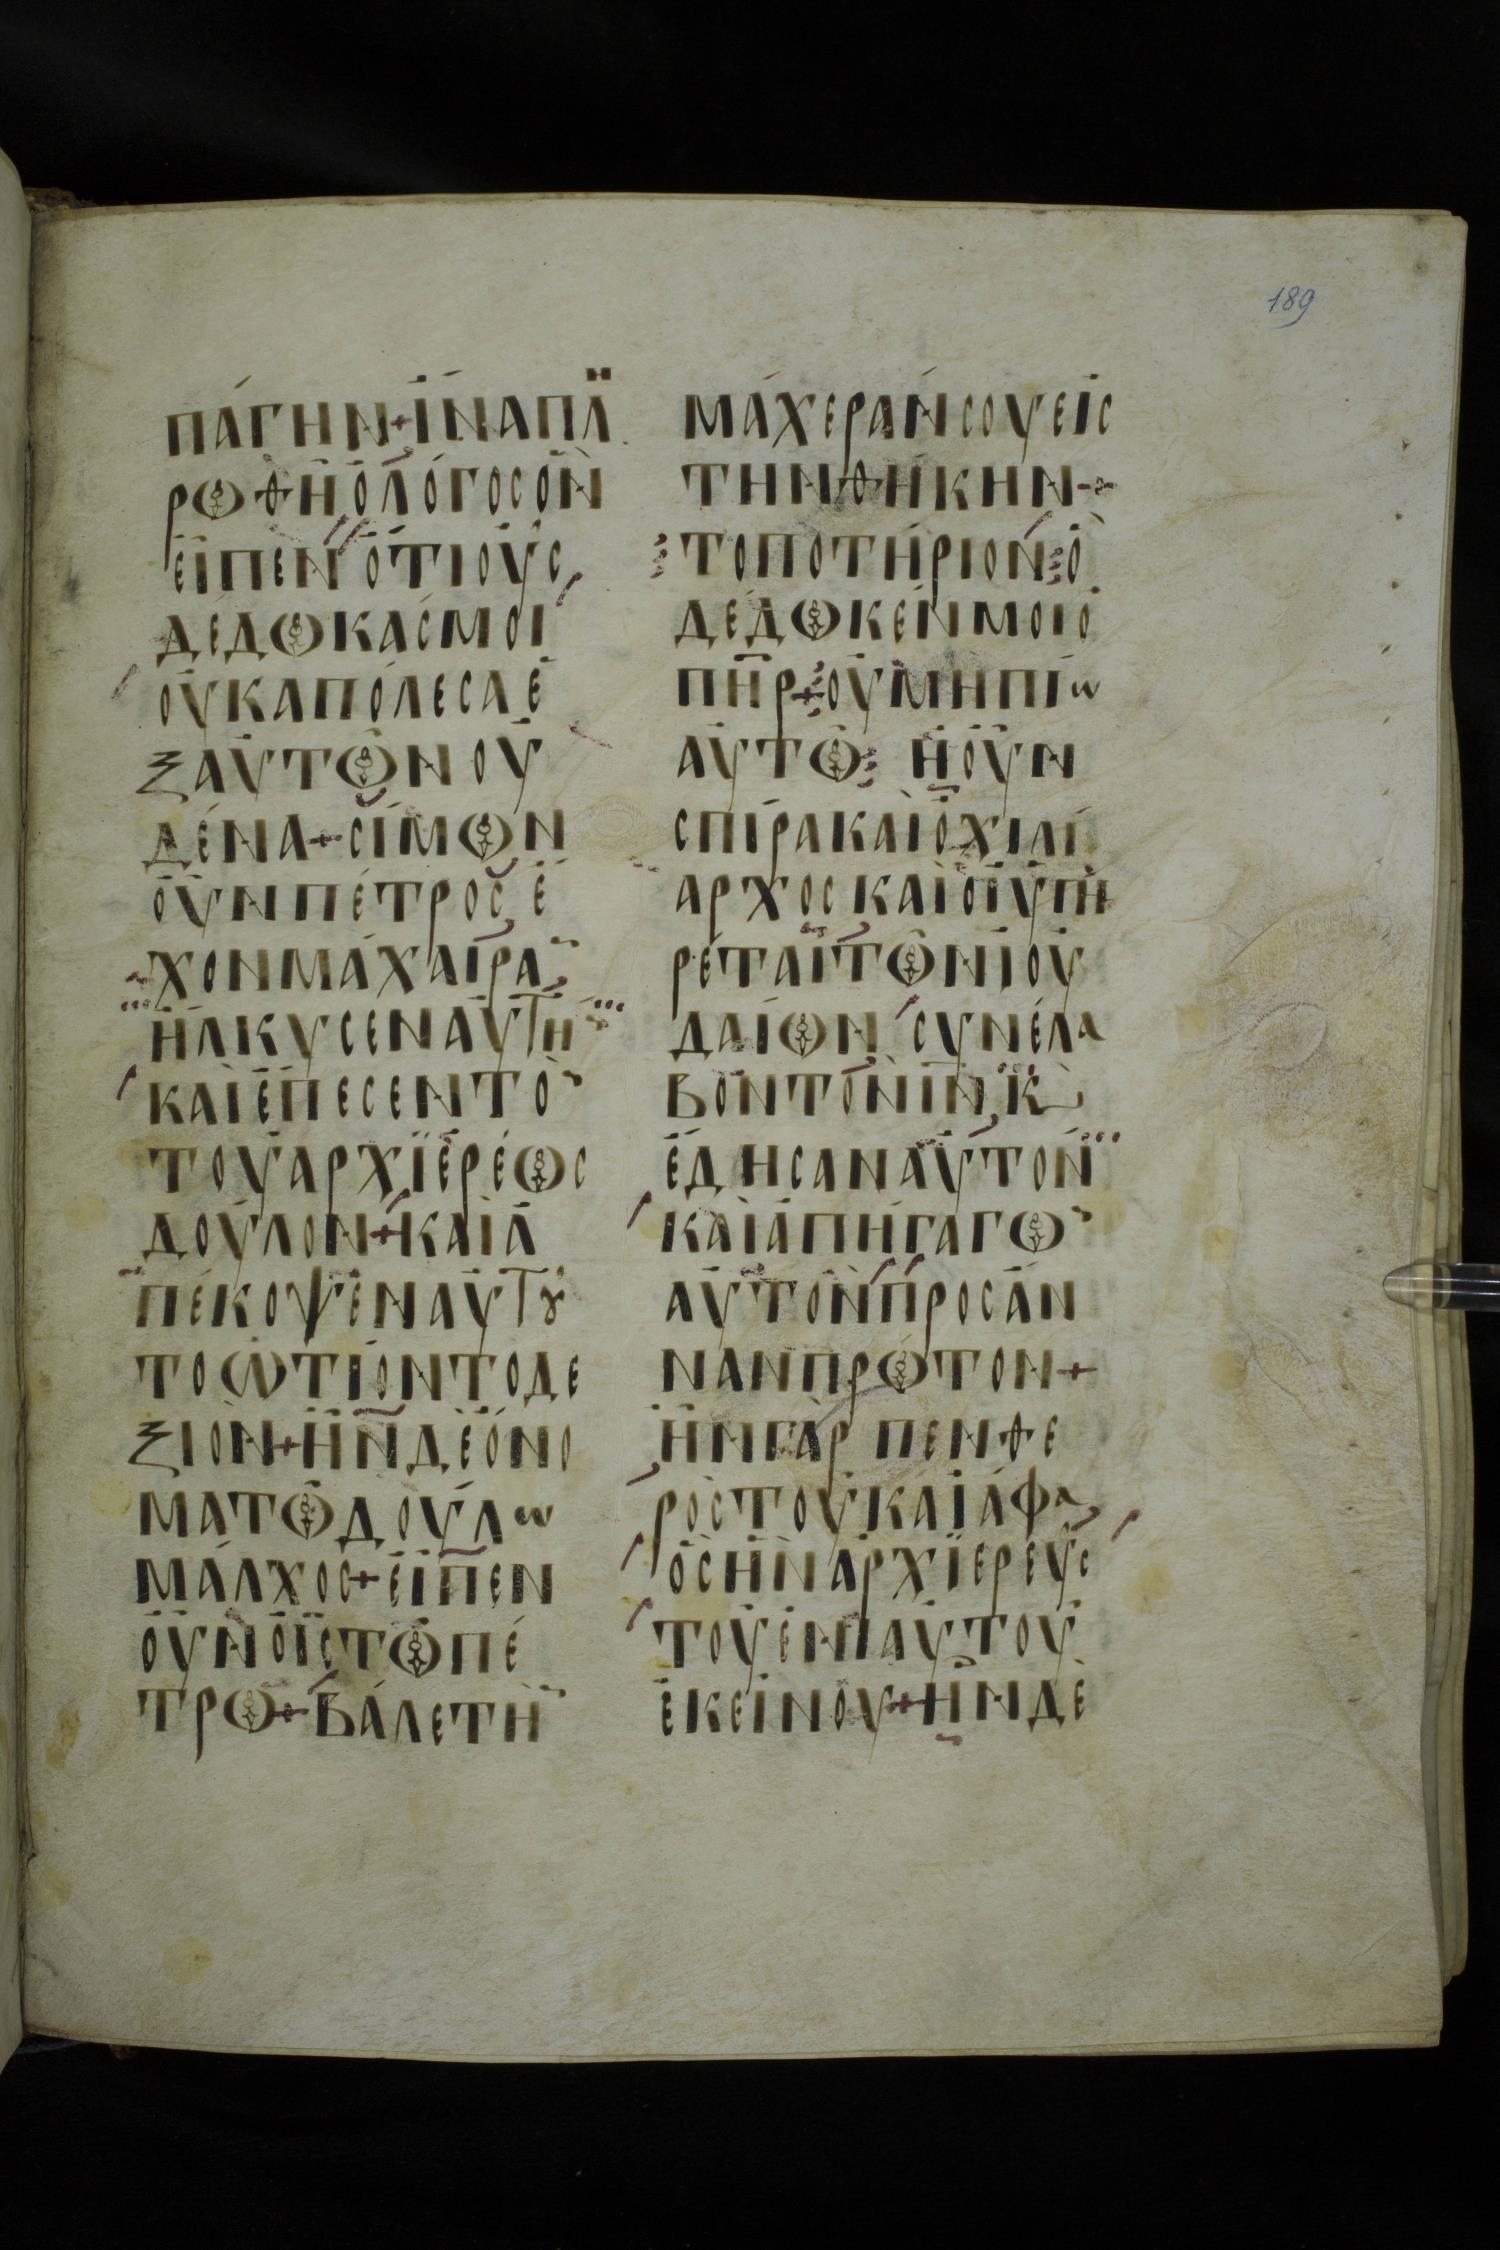 189
ΠΆΓΗΝ + ἽΝΑ ΠΛΗ
ΡΩΘΗ͂ Ὁ ΛΌΓΟΣ ὋΝ
ΕἾΠΕΝ ὍΤΙ ΟὝΣ
ΔΈΔΩΚΑΣ ΜΟΙ
ΟΥΚ ΑΠΌΛΕΣΑ Ἐ
ΞΑΥΤΩ͂Ν ΟΥ
ΔΈΝΑ + ΣΊΜΩΝ
ΟΥ͂Ν ΠΈΤΡΟΣ Ἔ
ΧΟΝ ΜΆΧΑΙΡΑ̅
ἩΛΚΥΣΕΝ ΑΥΤΗ̅
ΚΑῚ ἜΠΕΣΕΝ ΤΟ̅
ΤΟΥ ΑΡΧΪΕΡΈΩΣ
ΔΟΥ͂ΛΟΝ + ΚΑῚ Ἀ
ΠΈΚΟΨΕΝ ΑΥΤȢ͂
ΤΟ ὨΤΊΟΝ ΤΟ ΔΕ
ΞΙΟΝ + ἮΝ ΔῈ ὌΝΟ
ΜΑ ΤΩ͂ ΔΟΎΛΩ
ΜΆΛΧΟΣ + ΕἾΠΕΝ
ΟΥ͂Ν Ὁ ΙΣ ΤΩ͂ ΠΈ
ΤΡΩ + ΒΆΛΕ ΤΗ̅
ΜΆΧΕΡΑΝ ΣΟΥ ΕΙΣ
ΤΗΝ ΘΉΚΗΝ +
ΤΟ ΠΟΤΉΡΙΟΝ Ὃ
ΔΈΔΩΚΕΝ ΜΟΙ Ὁ
ΠΗΡ + ΟΥ ΜΗ ΠΊΩ
ΑΥΤΌ Ἡ ΟΥ͂Ν
ΣΠΙ͂ΡΑ ΚΑῚ Ὁ ΧΙΛΊ
ΑΡΧΟΣ ΚΑῚ ΟἹ ὙΠΗ
ΡΈΤΑΙ ΤΩ͂Ν ΙΟΥ
ΔΑΊΩΝ ΣΥΝΈΛΑ
ΒΟΝ ΤΟΝ ΙΝ Κ̀
ἜΔΗΣΑΝ ΑΥΤΟΝ
ΚΑῚ ἈΠΉΓΑΓΩ̅
ΑΥΤΟΝ ΠΡΟΣ ἌΝ
ΝΑΝ ΠΡΩ͂ΤΟΝ +
ἮΝ ΓᾺΡ ΠΕΝΘΕ
ΡΟΣ ΤΟΥ ΚΑΙΆΦΑ
ὋΣ ἮΝ ΑΡΧΪΕΡΕΥΣ
ΤΟΥ ΕΝΙΑΥΤΟΥ
ἘΚΕΊΝΟΥ + ἮΝ ΔῈ